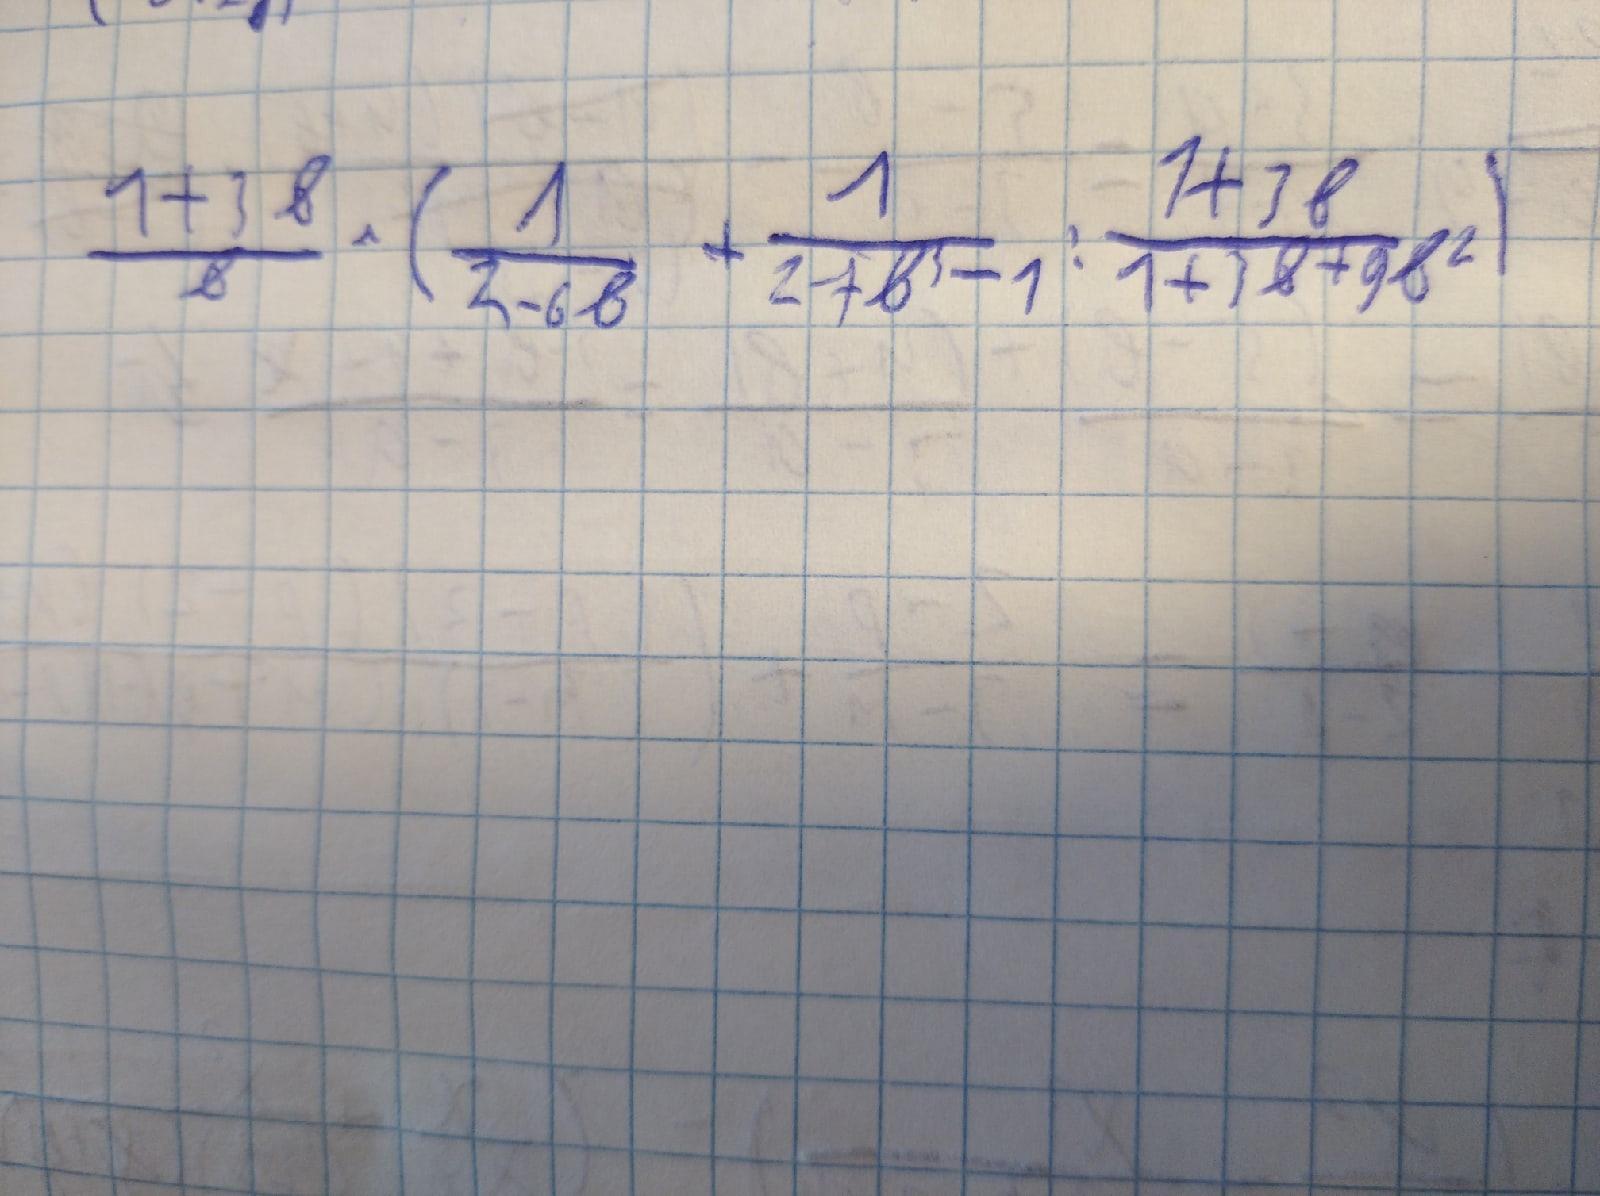 (1+3в)/в · (1/(2-6в) + 1/(27в³-1) : (1+3в)/(1+3в+9в²))